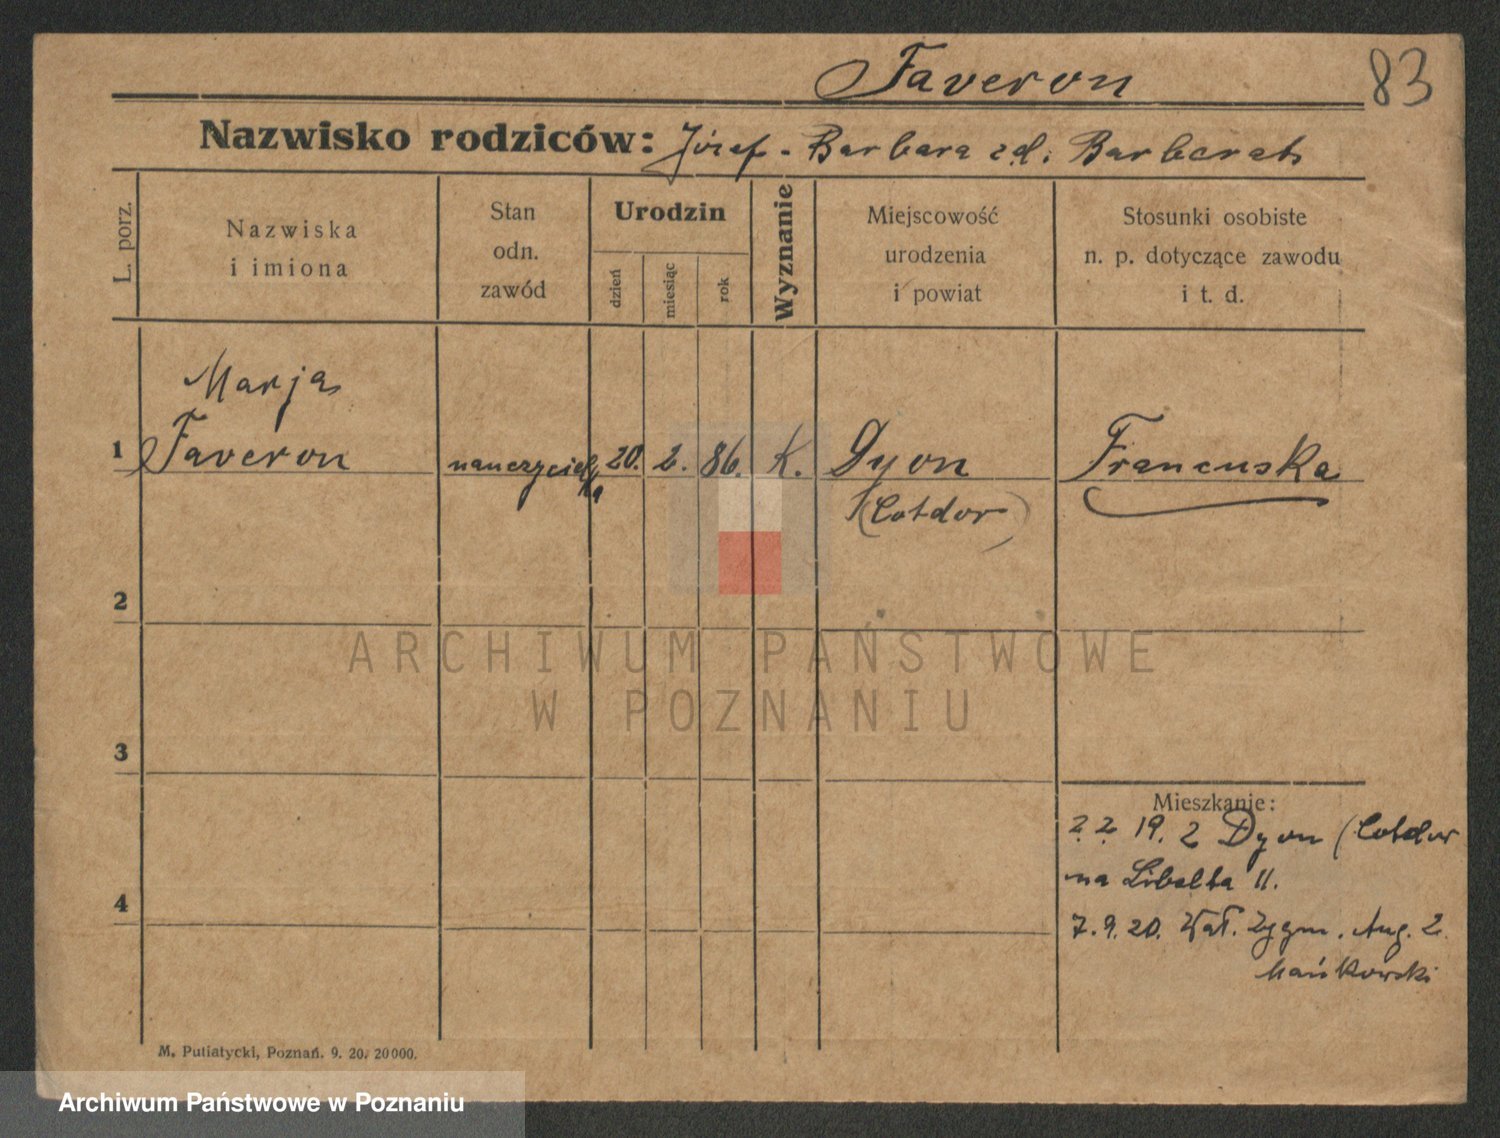 Faveron
83
Nazwisko rodziców: Józef - Barbara zd. Barberat
L. porz.
Nazwiska
i imiona
Stan
odn.
zawód
Urodzin
dzień
miesiąc
rok
Wyznanie
Miejscowość
urodzenia
i powiat
Stosunki osobiste
n. p. dotyczące zawodu
i t. d.
Marja
1 Faveron nauczyciel 20. 2. 86. K. Dyon Francuska
ka (Cotdor)
2
ARCHIWUM PAŃSTWOWE
W POZNANIU
3
Mieszkanie:
2 2 19. z Dyon (Cotdor
na Libelta 11.
4
7. 9. 20. Wał. Zygm. Aug. 2
Mańkowski
M. Putiatycki, Poznań. 9. 20. 20000.
Archiwum Państwowe w Poznaniu